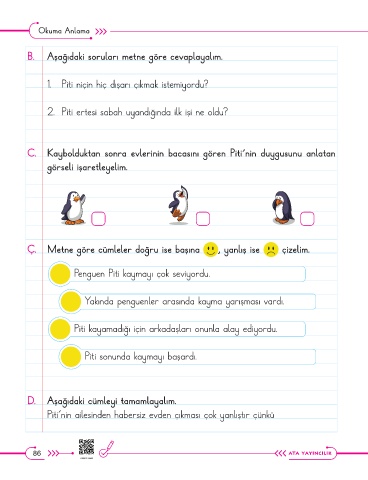 Okuma Anlama
B. Aşağıdaki soruları metne göre cevaplayalım.
1. Piti niçin hiç dışarı çıkmak istemiyordu?
2. Piti ertesi sabah uyandığında ilk işi ne oldu?
C. Kaybolduktan sonra evlerinin bacasını gören Piti'nin duygusunu anlatan
görseli işaretleyelim.
Ç. Metne göre cümleler doğru ise başına , yanlış ise çizelim.
Penguen Piti kaymayı çok seviyordu.
Yakında penguenler arasında kayma yarışması vardı.
Piti kayamadığı için arkadaşları onunla alay ediyordu.
Piti sonunda kaymayı başardı.
D. Aşağıdaki cümleyi tamamlayalım.
Piti'nin ailesinden habersiz evden çıkması çok yanlıştır çünkü
86
ATA YAYINCILIK